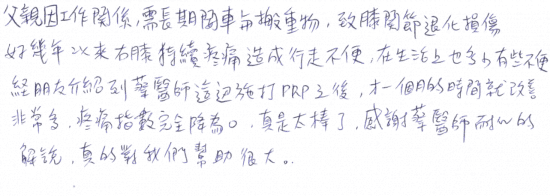 父親因工作關係,需長期開車與搬重物,致膝關節退化損傷
好幾年以來右膝持續疼痛造成行走不便,在生活上也多少有些不便
經朋友介紹到葉醫師這边施打PRP之後,才一個月的時間就改善
非常多,疼痛指數完全降為0,真是太棒了,感謝葉醫師耐心的
解說,真的對我們幫助很大。